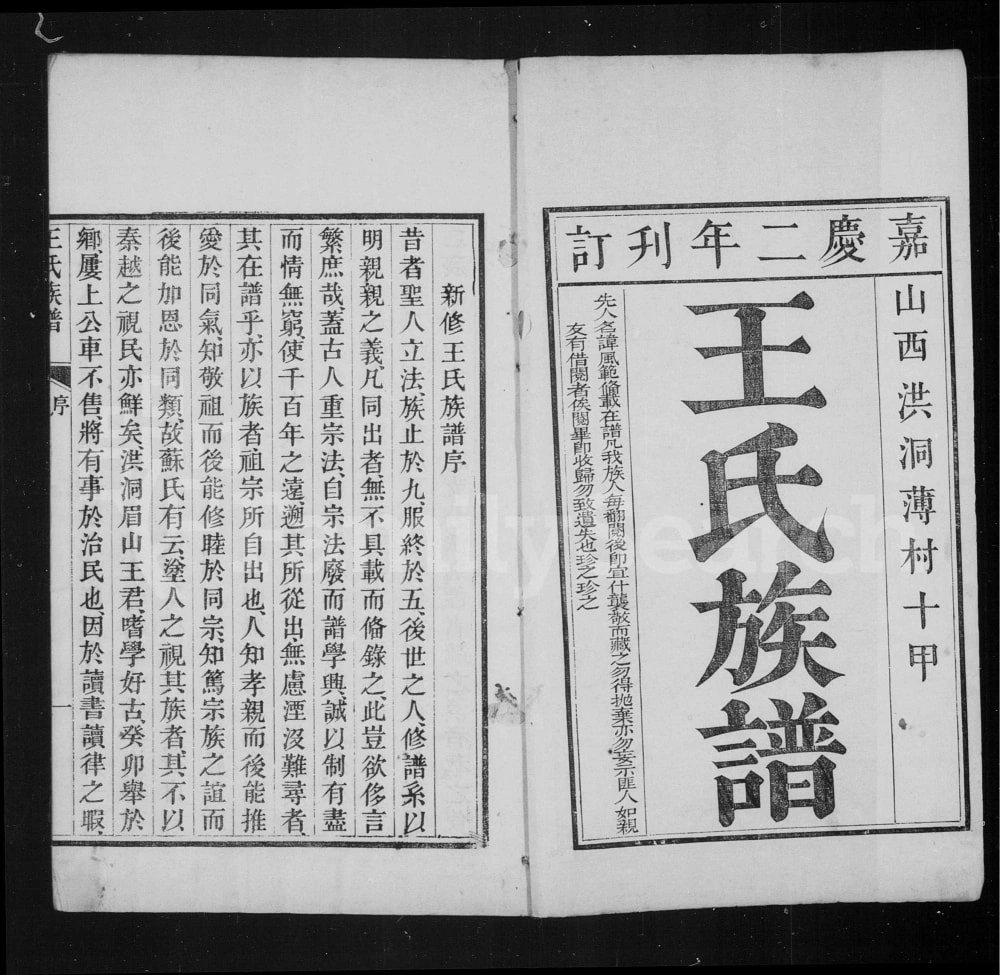 嘉慶二年刋訂
山西洪洞薄村十甲
王氏族譜
先人名諱風範俻載在譜凡我族人每翻閱後即宜什襲敬而藏之勿得拋棄亦勿妄示匪人如親
友有借閱者俟閱畢即收歸勿致遺失也珍之珍之
新修王氏族譜序
昔者聖人立法、族止於九、服終於五、後世之人、修譜系以
明親親之義、凡同出者、無不具載而俻錄之、此豈欲侈言
繁庶哉、蓋古人重宗法、自宗法廢而譜學興、誠以制有盡
而情無窮、使千百年之遠、遡其所從出、無慮湮沒難尋者、
其在譜乎、亦以族者祖宗所自出也、人知孝親而後能推
愛於同氣、知敬祖而後能修睦於同宗、知篤宗族之誼而
後能加恩於同類、故蘇氏有云、塗人之視其族者、其不以
秦越之視民亦鮮矣、洪洞眉山王君、嗜學好古、癸卯舉於
鄉、屢上公車不售、將有事於治民也、因於讀書讀律之暇、
王氏族譜
序
一
FamilySearch